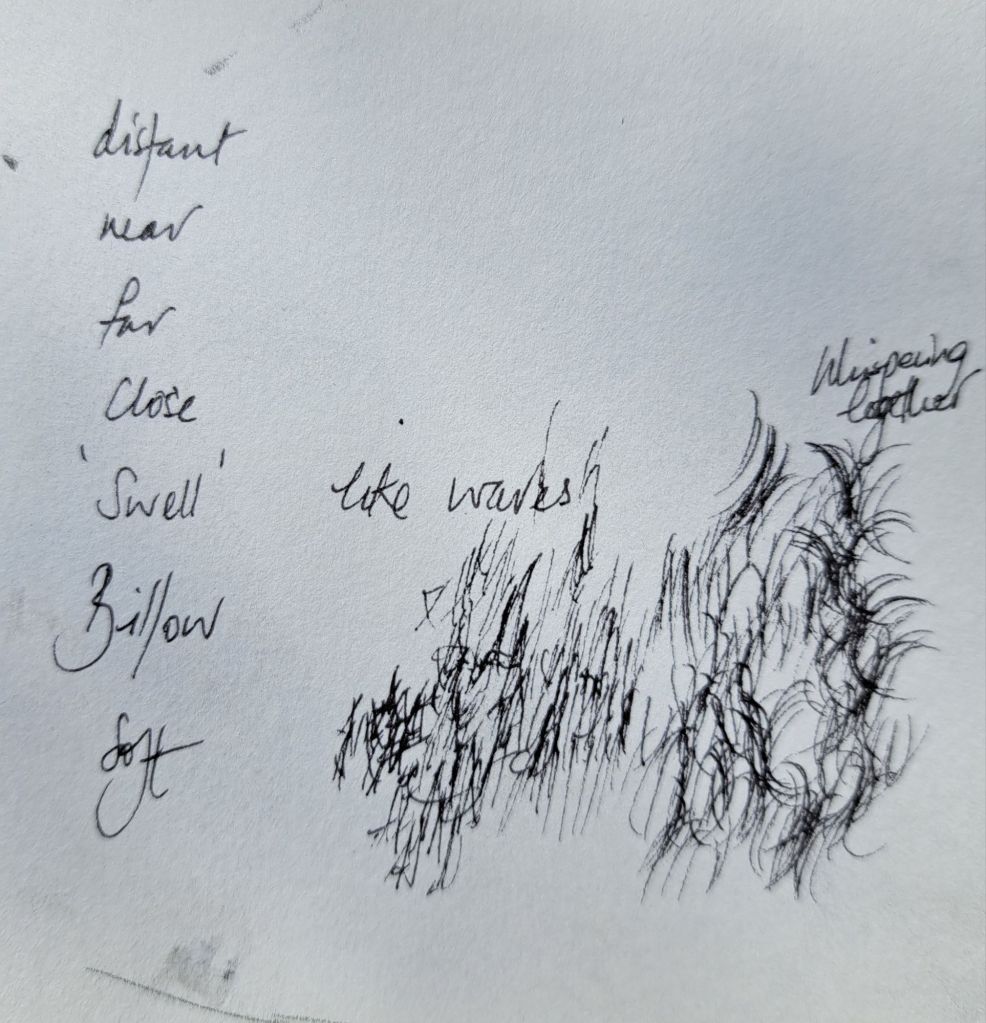 distant
near
far
Close
'Swell'
like waves
Billow
Soft
Whispering
together